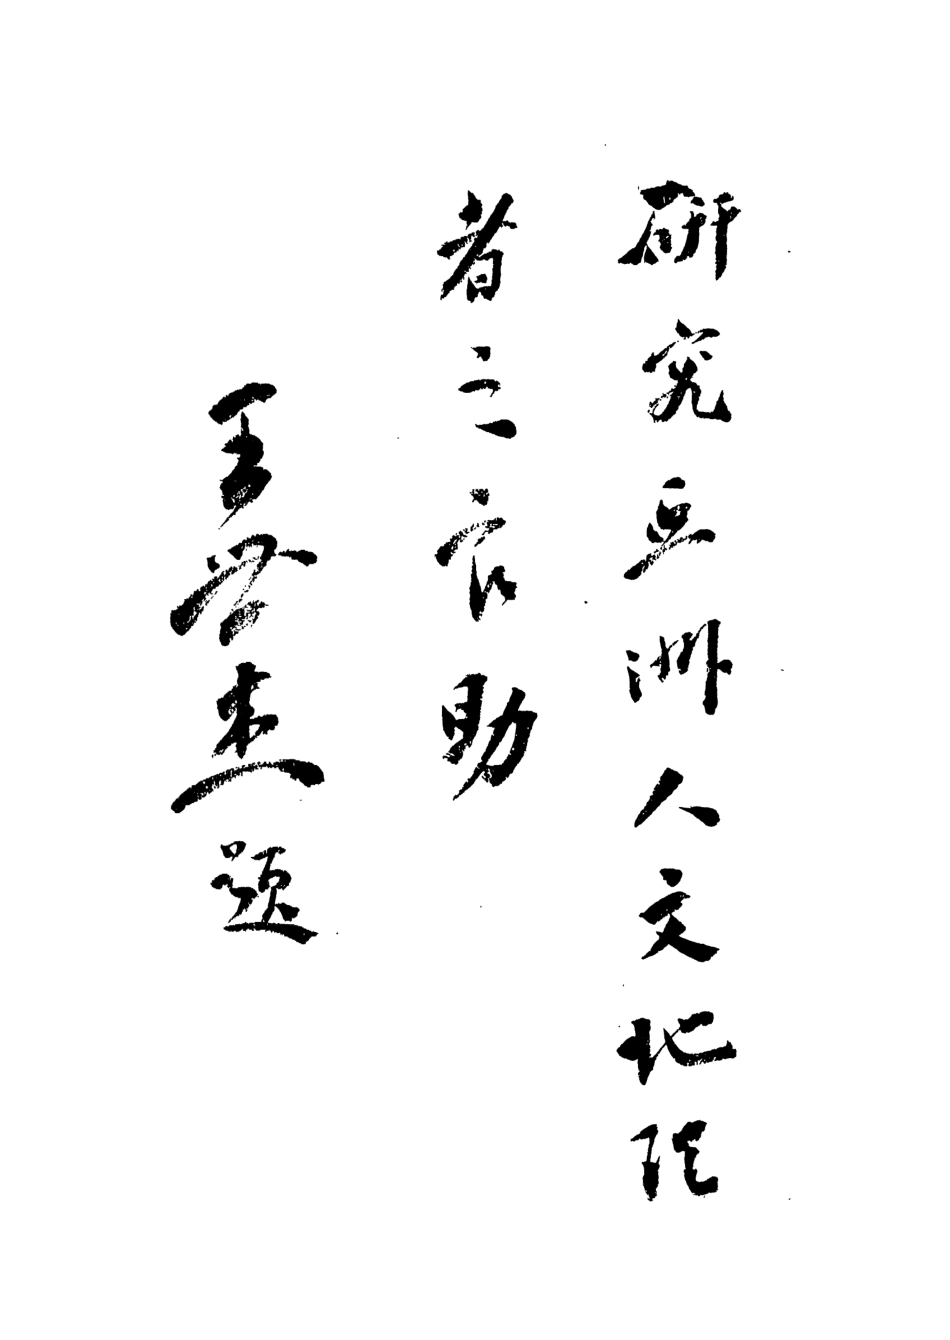 研究亞洲人文地理
者之良助
王世杰題